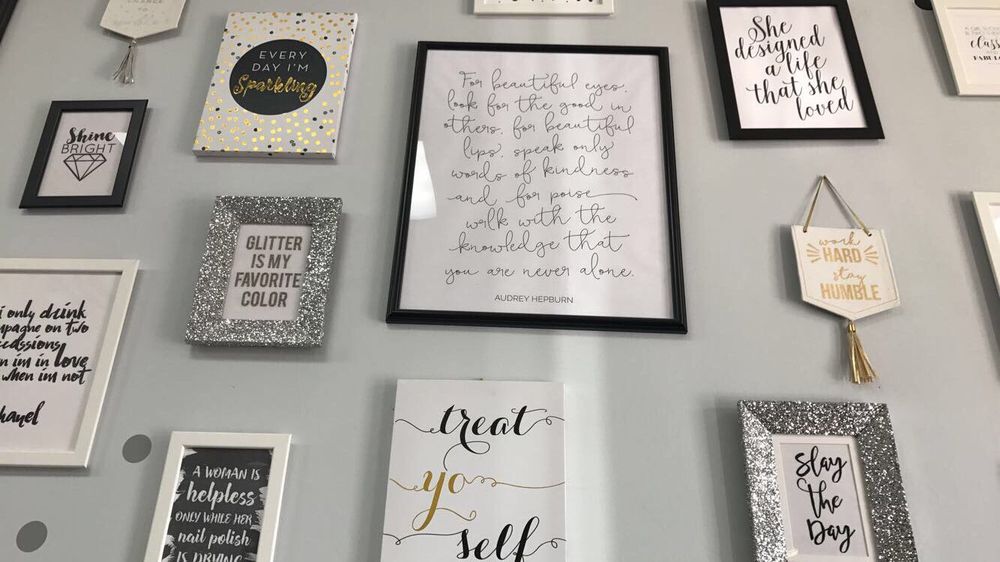 EVERY
DAY I'M
Sparkling
Shine
BRIGHT
For beautiful eyes,
look for the good in
others, for beautiful
lips, speak only
words of kindness
and for poise
walk with the
knowledge that
you are never alone.
AUDREY HEPBURN
She
designed
a life
that she
loved
GLITTER
IS MY
FAVORITE
COLOR
work
HARD
stay
HUMBLE
i only drink
on two
im in love
when im not
treat
yo
self
A WOMAN IS
helpless
ONLY WHILE HER
nail polish
IS DRYING
Slay
the
Day